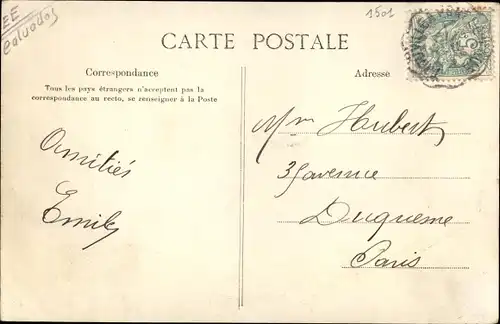 EE
Calvados
1501
CARTE POSTALE
Correspondance
Tous les pays étrangers n'acceptent pas la
correspondance au recto, se renseigner à la Poste
Amitiés
Emile
Adresse
5
Mme Hubert
35 avenue
Duquesne
Paris